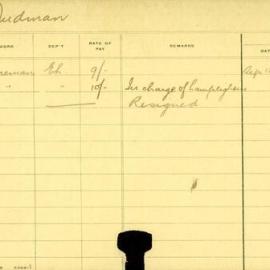 Dudman
WORK DEP'T RATE OF PAY REMARKS DA
reman Eh 9/-
" " 10/- In charge of Lamplighters
Resigned